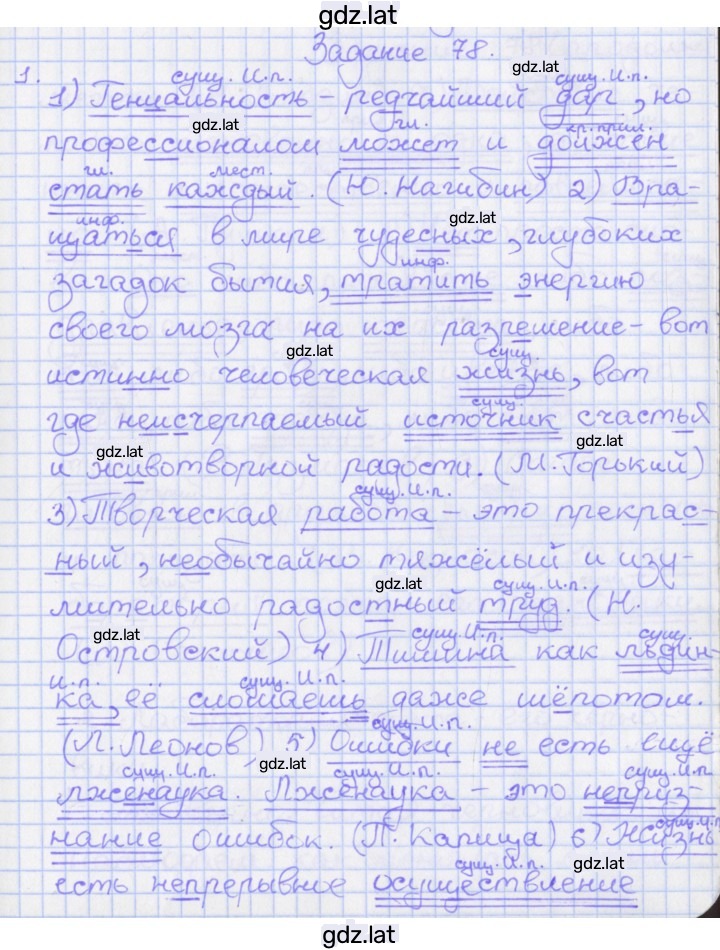 gdz.lat
Задание 78.
gdz.lat
сущ. И.п. сущ. И.п.
1. 1) Гениальность – редчайший дар, но
gdz.lat гл. кр. прил.
профессионалом может и должен
гл. мест.
стать каждый. (Ю. Нагибин) 2) Вра-
инф. gdz.lat
щаться в мире чудесных, глубоких
инф.
загадок бытия, тратить энергию
своего мозга на их разрешение – вот
gdz.lat сущ.
истинно человеческая жизнь, вот
сущ.
где неисчерпаемый источник счастья
gdz.lat gdz.lat
и животворной радости. (М. Горький)
сущ. И.п.
3) Творческая работа – это прекрас-
ный, необычайно тяжёлый и изу-
gdz.lat сущ. И.п.
мительно радостный труд. (Н.
gdz.lat сущ. И.п. сущ.
Островский) 4) Тишина как льдин-
И.п. сущ. И.п.
ка, её сломаешь даже шёпотом.
сущ. И.п.
(Л. Леонов) 5) Ошибки не есть ещё
сущ. И.п. gdz.lat сущ. И.п. сущ. И.п
лженаука. Лженаука – это неприз-
сущ. И.п.
нание ошибок. (П. Капица) 6) Жизнь
сущ. И.п. gdz.lat
есть непрерывное осуществление
gdz.lat